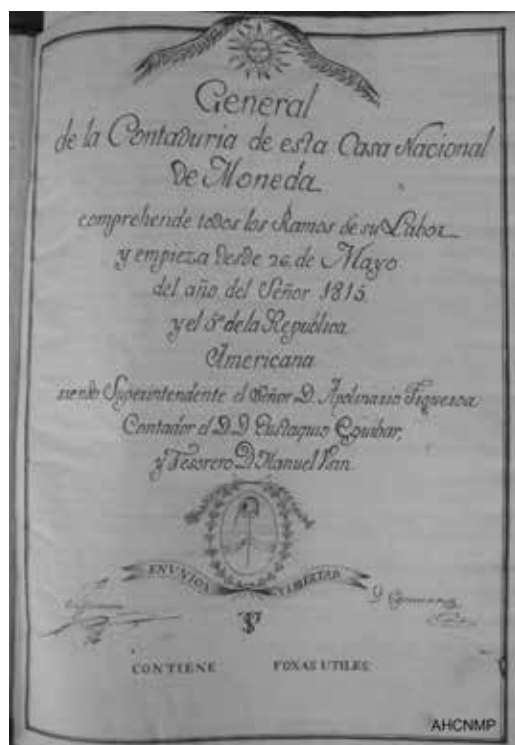 General
de la Contaduria de esta Casa Nacional
de Moneda
comprehende todos los Ramos de su Labor
y empieza desde 26 de Mayo
del año del Señor 1815
y el 6º de la Republica
Americana
siendo Superintendente el Señor D. Apolinario Figueroa
Contador el D.D. Eustaquio Eguibar,
y Tesorero D. Manuel
EN UNION Y LIBERTAD
CONTIENE FOXAS UTILES
AHCNMP